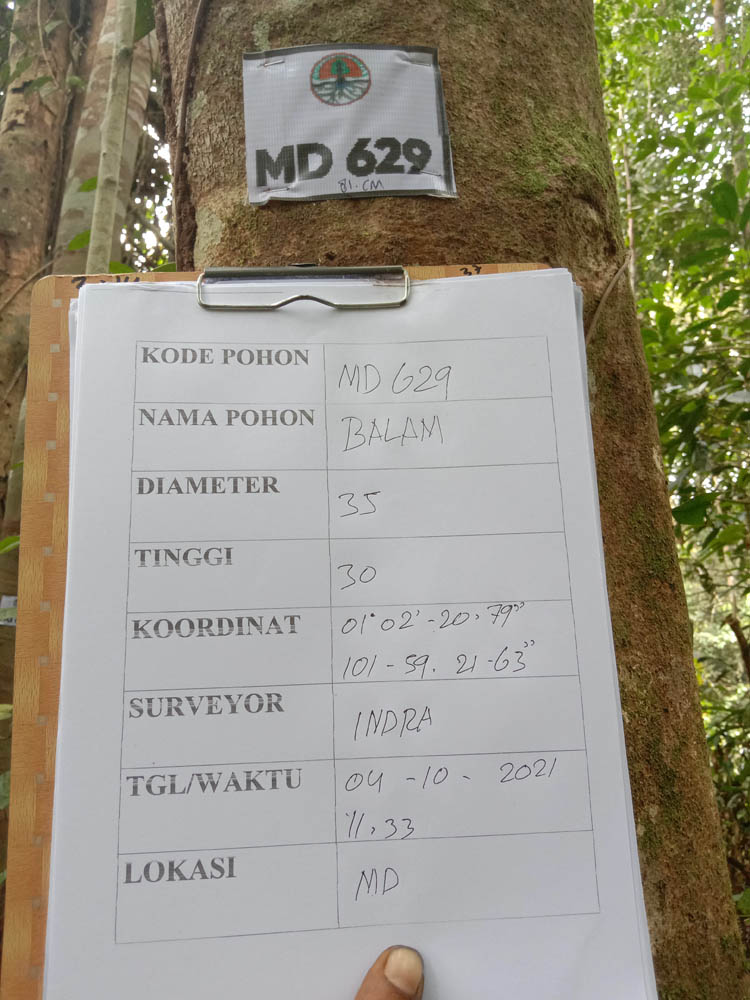 MD 629
81. CM
KODE POHON MD 629
NAMA POHON BALAM
DIAMETER 35
TINGGI 30
KOORDINAT 01° 02' - 20.79"
101 - 59. 21 - 63"
SURVEYOR INDRA
TGL/WAKTU 04 - 10 - 2021
11.33
LOKASI MD